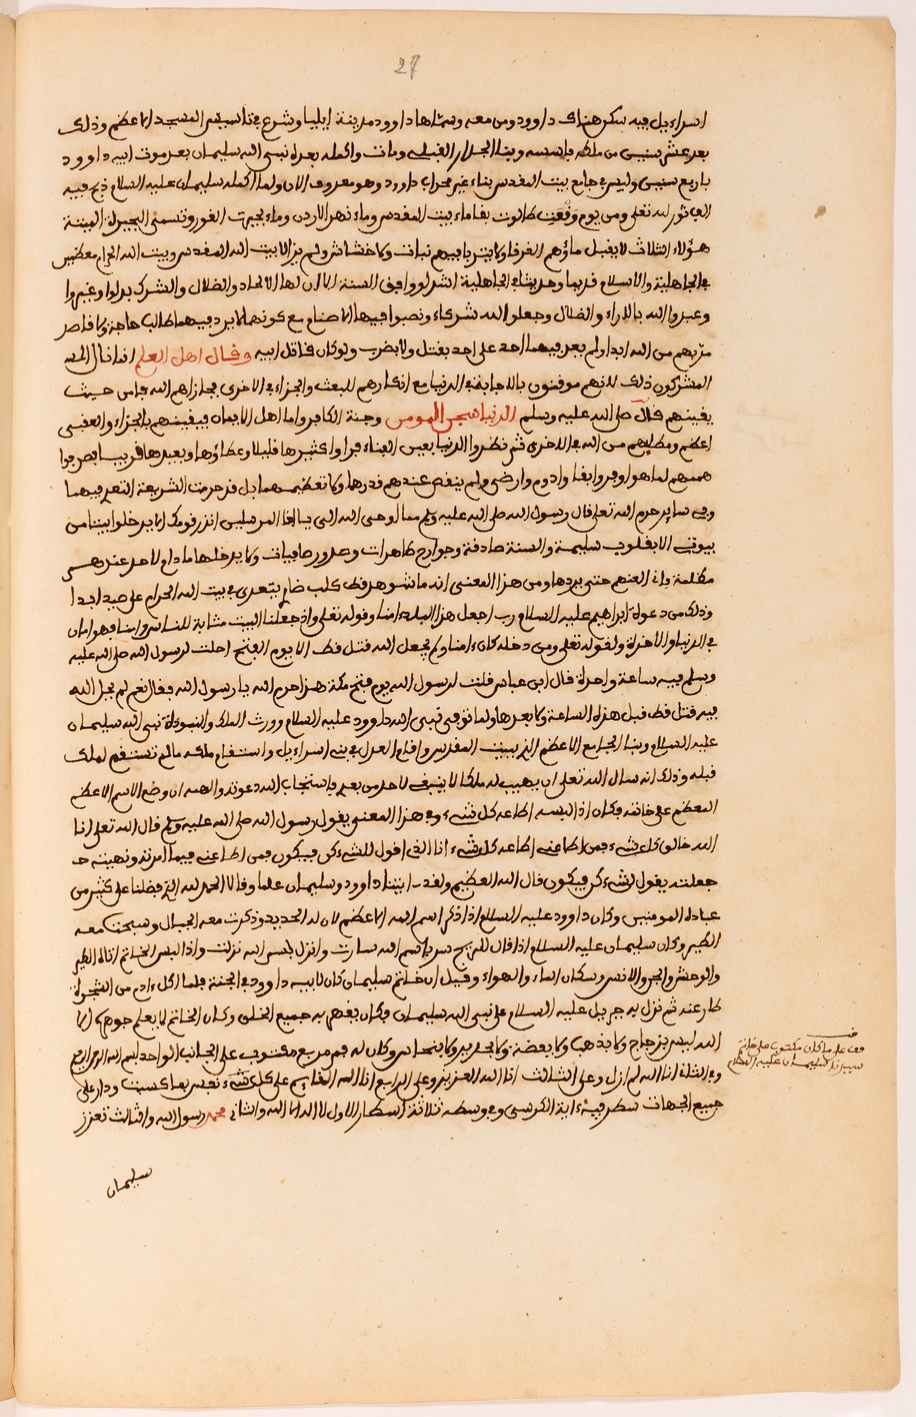 27
اسراءيل فيه سكن هناك داوود ومن معه وسماها داوود مدينة ايليا وشرع في تاسيس المسجد الاعظم وذلك
بعد عشر سنين من ملكه فاسسه وبنا الجدار القبلي ومات واكمله بعده نبي الله سليمان بعد موت ابيه داوود
باربع سنين وليس في جامع بيت المقدس بناء غير محراب داوود وهو معروف الان ولما اكمله سليمان عليه السلام ذبح فيه
الف ثور لله تعلى ومن يوم وقعت طالوت بقا ماء بيت المقدس وماء نهر الاردن وماء بحيرت الغور وتسمى البحيرة الميتة
هـؤلاء الثلاث لا يقبل ماؤهم الغرفا ولا يتربا فيهم نبات ولا خشاش ولم يزالا بيت الله المقدس وبيت الله الحرام معظمين
في الجاهلية والاسلام قديما وحديثا في الجاهلية اشركوا وافق السنة الا ان لها الالحاد والضلال والشرك بدلوا وغيروا
وعبدوا الله بالاراء والضلال وجعلوا لله شركاء ونصبوا فيها الاصنام مع كونهما لا يرد فيهما طالب حاجة ولا قاصر
مزيهم من الله ابدا ولم يعد فيهما احد على احد بقتل ولا بضرب ولو كان قاتل ابيه وقال اهل العلم انما نال الله
المشركون ذلك لانهم موقنون بالاجابة في الدنيا مع انكارهم للبعث والجزاء في الاخرى فجازاهم الله فامن حيث
يقينهم قال صلى الله عليه وسلم الدنيا سجن المومن وجنة الكافر واما اهل الايمان فيقينهم بالجزاء والعقبى
اعظم ومطلبهم من الله في الاخرى ثم نظروا الدنيا بعين الفناء فراوا كثيرها قليلا وعطاؤها وبعيدها قريبا فصرفوا
هممهم لما هو اوفر وابقا وادوم وارضى ولم ينقص عندهم قدرهما ولا تعظيمهما بل قد حرمت الشريعة التعد فيهما
وفي ساير حرم الله تعلى قال رسول الله صلى الله عليه وسلم مما اوحى الله الى يا اخا المرسلين انذر قومك الا يدخلوا بيتا من
بيوتي الا بقلوب سليمة والسنة صادقة وجوارح طاهرات وصدور صافيات ولا يدخلها ما دام لاحد عندهم
مظلمة فاني العنهم حتى يردها ومن هذا المعنى انه ما شوهد قط كلب ضار يتعدى في بيت الله الحرام على صيد ابدا
وذلك من دعوة ابراهيم عليه السلام رب اجعل هذا البلد امنا وقوله تعلى واذ جعلنا البيت مثابة للناس وامنا فهو امان
في الدنيا والاخرة ولقوله تعلى ومن دخله كان ءامنا ولم يجعل الله قتل قط الا يوم الفتح احلت لرسول الله صلى الله عليه
وسلم فيه ساعة واحدة قال ابن عباس قلت لرسول الله يوم فتح مكة هذا حرم الله يا رسول الله فقال نعم لم يحل الله
فيه قتل قط قبل هذه الساعة ولا بعدها ولما توفى نبي الله داوود عليه السلام وورث الملك والنبوءة نبي الله سليمان
عليه السلام وبنا الجامع الاعظم الذي ببيت المقدس واقام العدل في بني اسراءيل واستقام ملكه مالم تستقم لملك
قبله وذلك انه سال الله تعلى ان يهب له ملكا لا ينبغي لاحد من بعده فاستجاب الله دعوته والهمه ان وضع الاسم الاعظم
المعظم على خاتمه فكان اذا لبسه اطاعه كل شيء وفي هذا المعنى يقول رسول الله صلى الله عليه وسلم قال الله تعلى انا
الله خالق كل شيء فمن اطاعني اطاعه كل شيء انا الذي اقول للشيء كن فيكون فمن اطاعني فيما امرته ونهيته عـ
جعلته يقول لشيء كن فيكون قال الله العظيم ولقد ءاتينا داوود وسليمان علما وقالا الحمد لله الذي فضلنا على كثير من
عباده المومنين وكان داوود عليه السلام اذا ذكر اسم الله الاعظم لان له الحديد وذكرت معه الجبال وسبحت معه
الطير وكان سليمان عليه السلام اذا قال للريح سر باسم الله سارت وانزل بسم الله نزلت واذا لبس الخاتم اتاه الطير
والوحش والجن والانس وسكان الماء والهواء وقيل ان خاتم سليمان كان لابيه داوود في الجنة فلما اكل ءادم من الشجرة
طار عنه ثم نزل به جبريل عليه السلام على نبي الله سليمان فكان يقهم به جميع الخلق وكان الخاتم لا يعلم جوهره الا
الله ليس بزجاج ولا بذهب ولا بفضة ولا بحديد ولا بنحاس وكان له فص مربع مكتوب على الجانب الواحد بسم الله الرحمن الرحيم
وفي الثاني انا الله لم ازل وعلى الثالث انا الله العزيز وعلى الرابع انا الله القايم على كل نفس بما كسبت ودار على
جميع الجهات سطر فيه ءاية الكرسي وفي وسطه ثلاثة اسطار الاول لا اله الا الله والثاني محمد رسول الله والثالث تعزز
قف على ما كان مكتوب على خاتم
سيدنا سليمان عليه السلام
سليمان